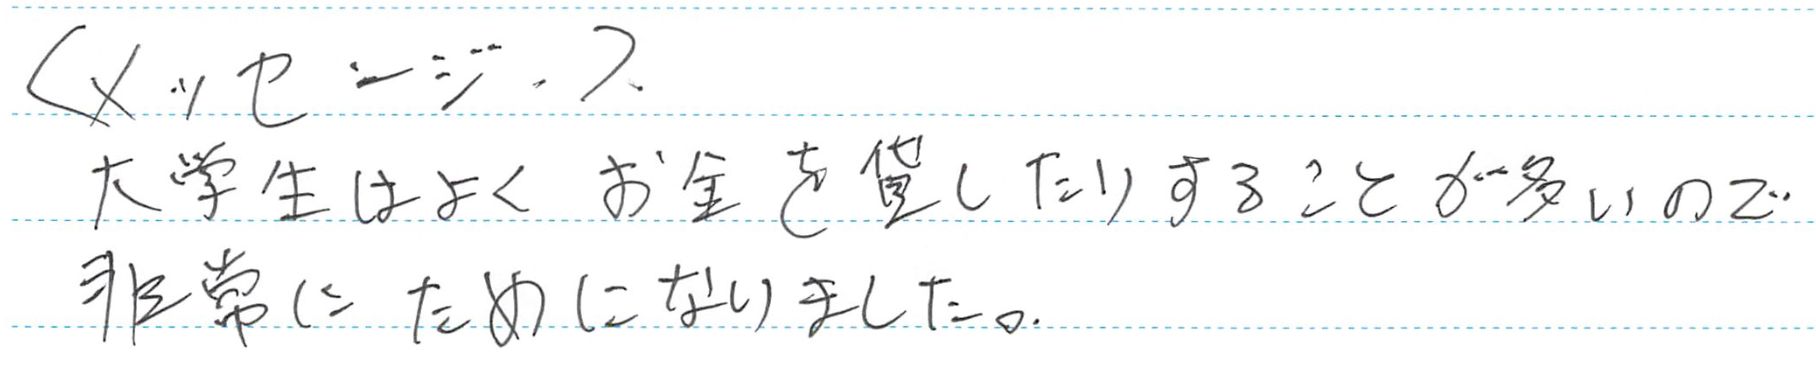 〈メッセージ〉
大学生はよくお金を貸したりすることが多いので
非常にためになりました。